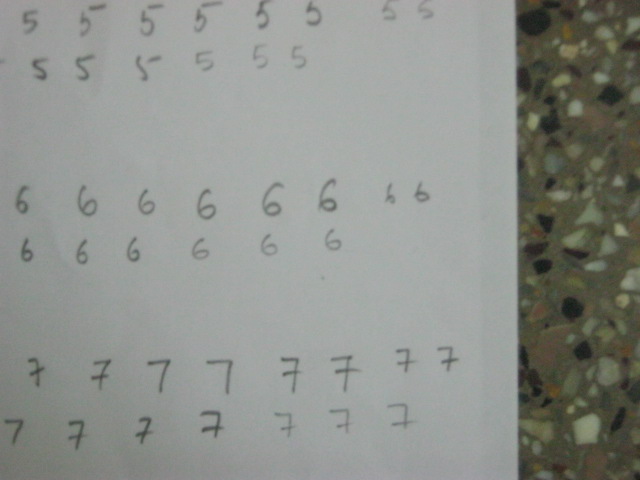 5 5 5 5 5 5 5 5
5 5 5 5 5 5
6 6 6 6 6 6 6 6
6 6 6 6 6 6
7 7 7 7 7 7 7 7
7 7 7 7 7 7 7